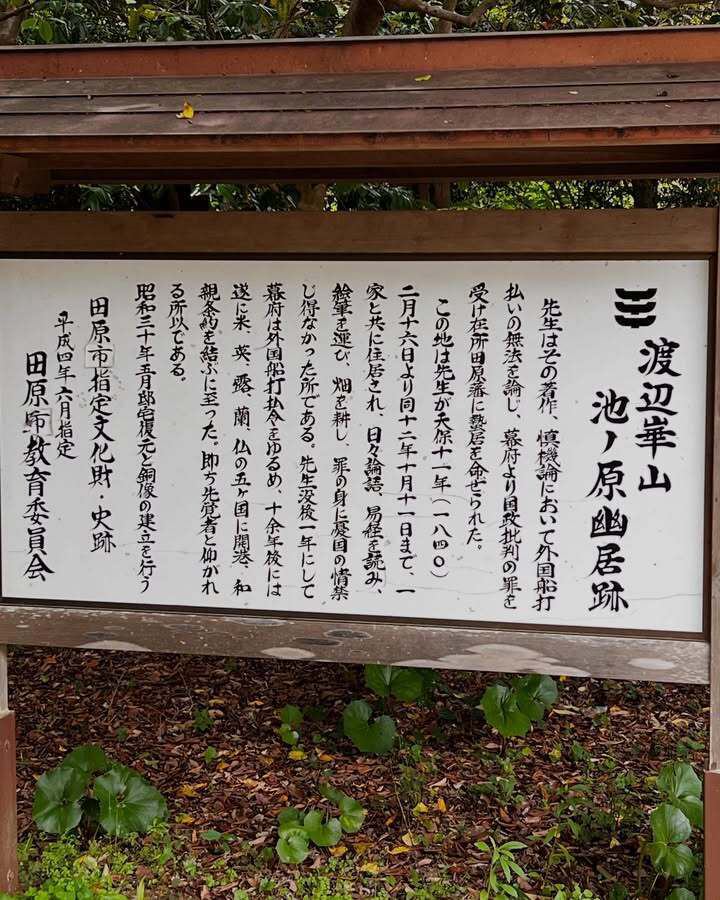 渡辺崋山
池ノ原幽居跡
先生はその著作、慎機論において外国船打
払いの無法を論じ、幕府より国政批判の罪を
受け在所田原藩に蟄居を命せられた。
この地は先生が天保十一年(一八四〇)
二月十六日より同十二年十月十一日まで、一
家と共に住居され、日々論語、易経を読み、
絵筆を運び、畑を耕し、罪の身に憂国の情禁
じ得なかった所である。先生没後一年にして
幕府は外国船打払令をゆるめ、十余年後には
遂に米、英、露、蘭、仏の五ヶ国に開港、和
親条約を結ぶに至った。即ち先覚者と仰がれ
る所以である。
昭和三十年五月邸宅復元と銅像の建立を行う
田原市指定文化財・史跡
平成四年六月指定
田原市教育委員会